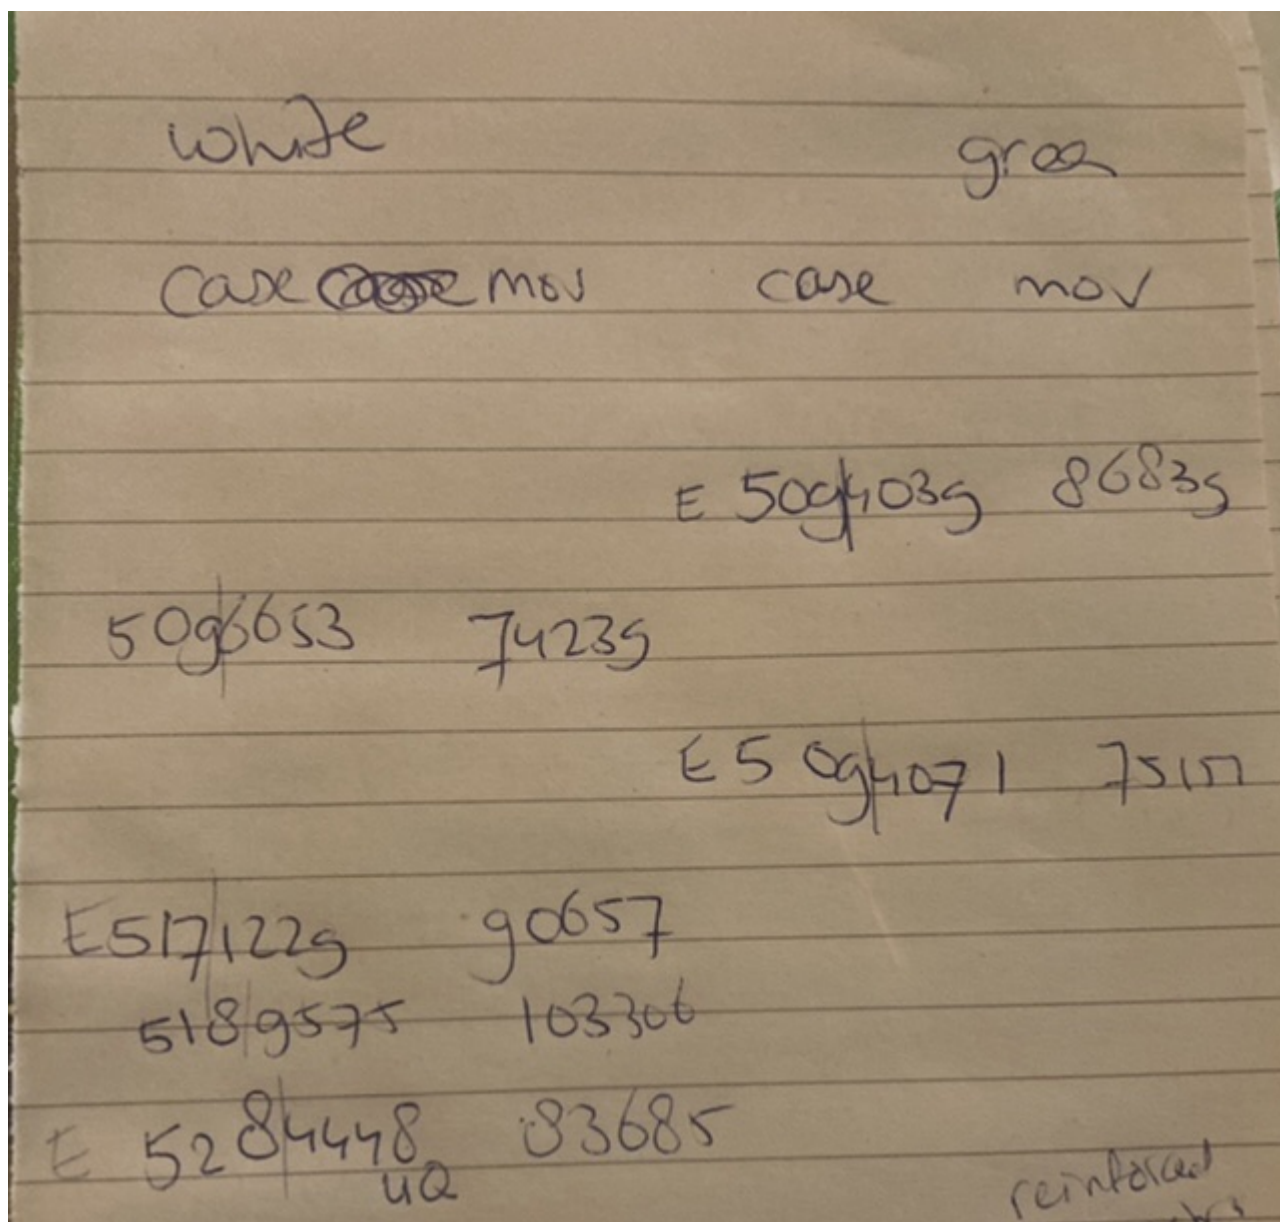 white green
case mov case mov
E 509|4039 86839
509|6653 74239
E 509|4071 75177
E517|1229 90657
518|9575 103306
E 528|4448 83685
UQ
reinforced